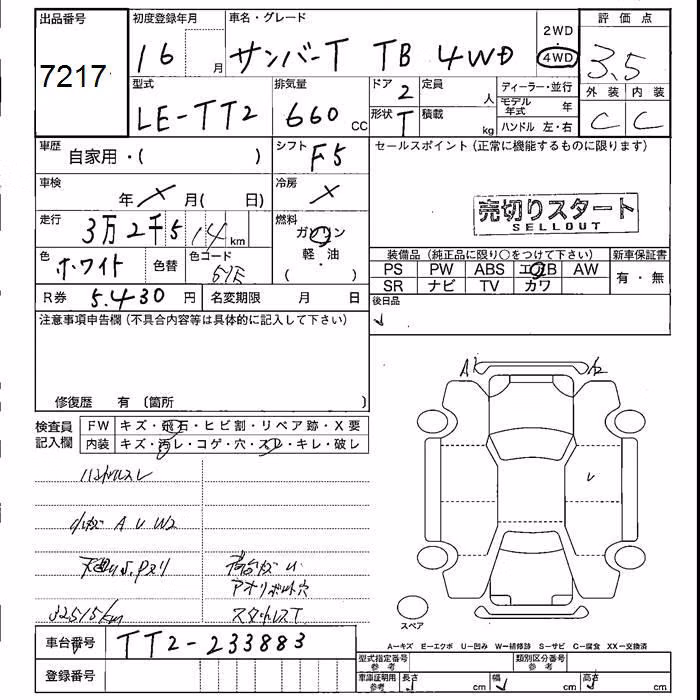 出品番号 初度登録年月 車名・グレード 2WD 評価点
7217 16 月 サンバーT TB 4WD 4WD 3.5
型式 排気量 ドア 定員 ディーラー・並行 外装 内装
LE-TT2 660 CC 2 人 モデル年式 年 C C
形状 積載
T kg ハンドル 左・右
車歴 自家用・( ) シフト F5 セールスポイント(正常に機能するものに限ります)
車検 年 × 月( 日) 冷房 ×
売切りスタート
SELLOUT
走行 3万2千5 14 km 燃料 ガソリン
軽・油
( )
色 ホワイト 色替 色コード 51E
装備品(純正品に限り○をつけて下さい) 新車保証書
PS PW ABS エアB AW 有・無
SR ナビ TV カワ
R券 5.430 円 名変期限 月 日 後日品
注意事項申告欄(不具合内容等は具体的に記入して下さい)
修復歴 有 〔箇所 〕
検査員記入欄 FW キズ・飛石・ヒビ割・リペア跡・X要
内装 キズ・汚レ・コゲ・穴・スレ・キレ・破レ
ハンドルスレ
小キズ A U W2
アオリボルト穴
32515km スタットレスT
A1
A2
スペア
A-キズ E-エクボ U-凹み W-補修跡 S-サビ C-腐食 XX-交換済
車台番号 TT2-233883
登録番号
型式指定番号 参考 類別区分番号 参考
車庫証明用 参考 長さ cm 幅 cm 高さ cm